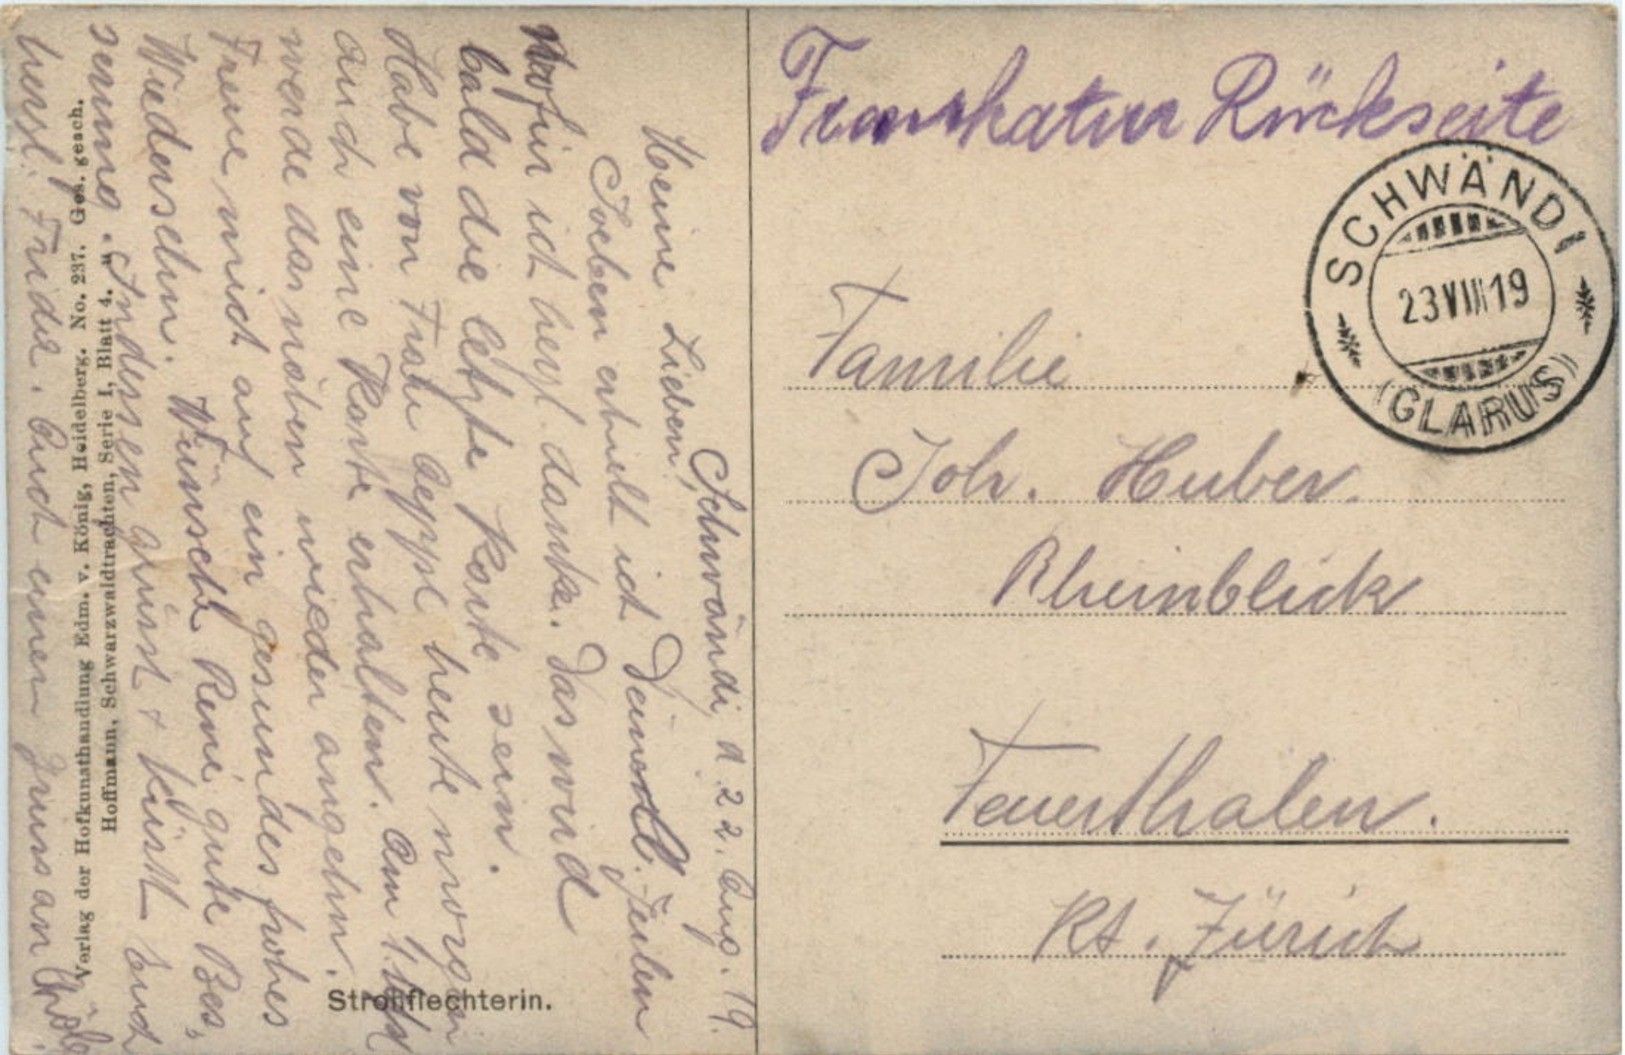 Frankatur Rückseite
SCHWÄNDI
23 VIII 19
(GLARUS)
Familie
Joh. Huber.
Rheinblick
Feuerthalen.
Kt. Zürich
Schwändi, d. 22. Aug. 19.
Meine Lieben!
Soeben erhielt ich Deine Zeilen
wofür ich herzl. danke. Das wird
bald die letzte Karte sein.
Habe von Frau heute morgen
auch eine Karte erhalten. Am 1.
werde das wieder angehn.
Freue mich auf ein gesundes frohes
Wiedersehn. Wünsche gute Bes,
serung. Indessen grüsst & küsst Euch
herzl. Frida. Auch einen Gruss an
Strohflechterin.
Verlag der Hofkunsthandlung Edm. v. König, Heidelberg. No. 237. Ges. gesch.
Hoffmann, Schwarzwaldtrachten, Serie I, Blatt 4.